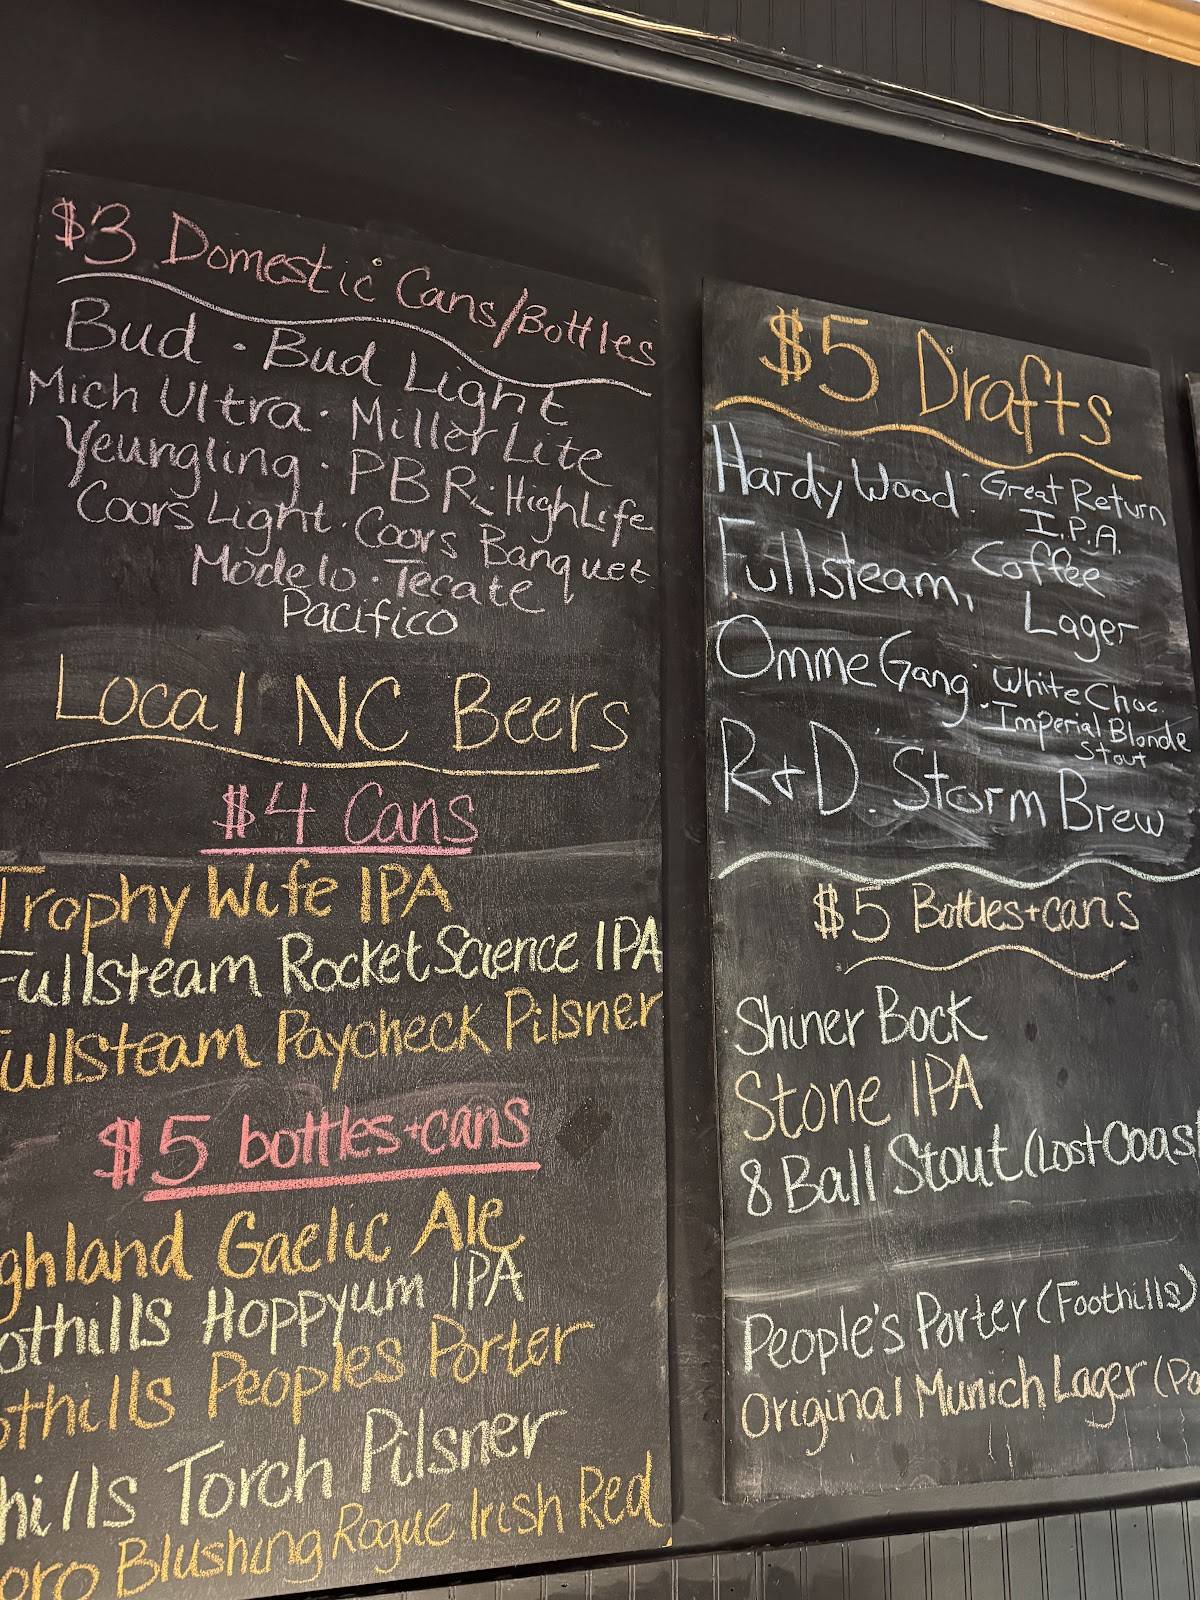 $3 Domestic Cans/Bottles
Bud · Bud Light
Mich Ultra · Miller Lite
Yeungling · PBR · HighLife
Coors Light · Coors Banquet
Modelo · Tecate
Pacifico
Local NC Beers
$4 Cans
Trophy Wife IPA
Fullsteam Rocket Science IPA
Fullsteam Paycheck Pilsner
$5 bottles+cans
ghland Gaelic Ale
othills Hoppyum IPA
othills Peoples Porter
hills Torch Pilsner
oro Blushing Rogue Irish Red
$5 Drafts
Hardy Wood · Great Return
I.P.A.
Fullsteam, Coffee
Lager
Omme Gang · White Choc.
· Imperial Blonde
Stout
R+D. Storm Brew
$5 Bottles+cans
Shiner Bock
Stone IPA
8 Ball Stout (Lost Coast
People's Porter (Foothills)
Original Munich Lager (Pa